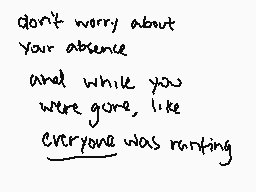 don't worry about
your absence
and while you
were gone, like
everyone was ranting